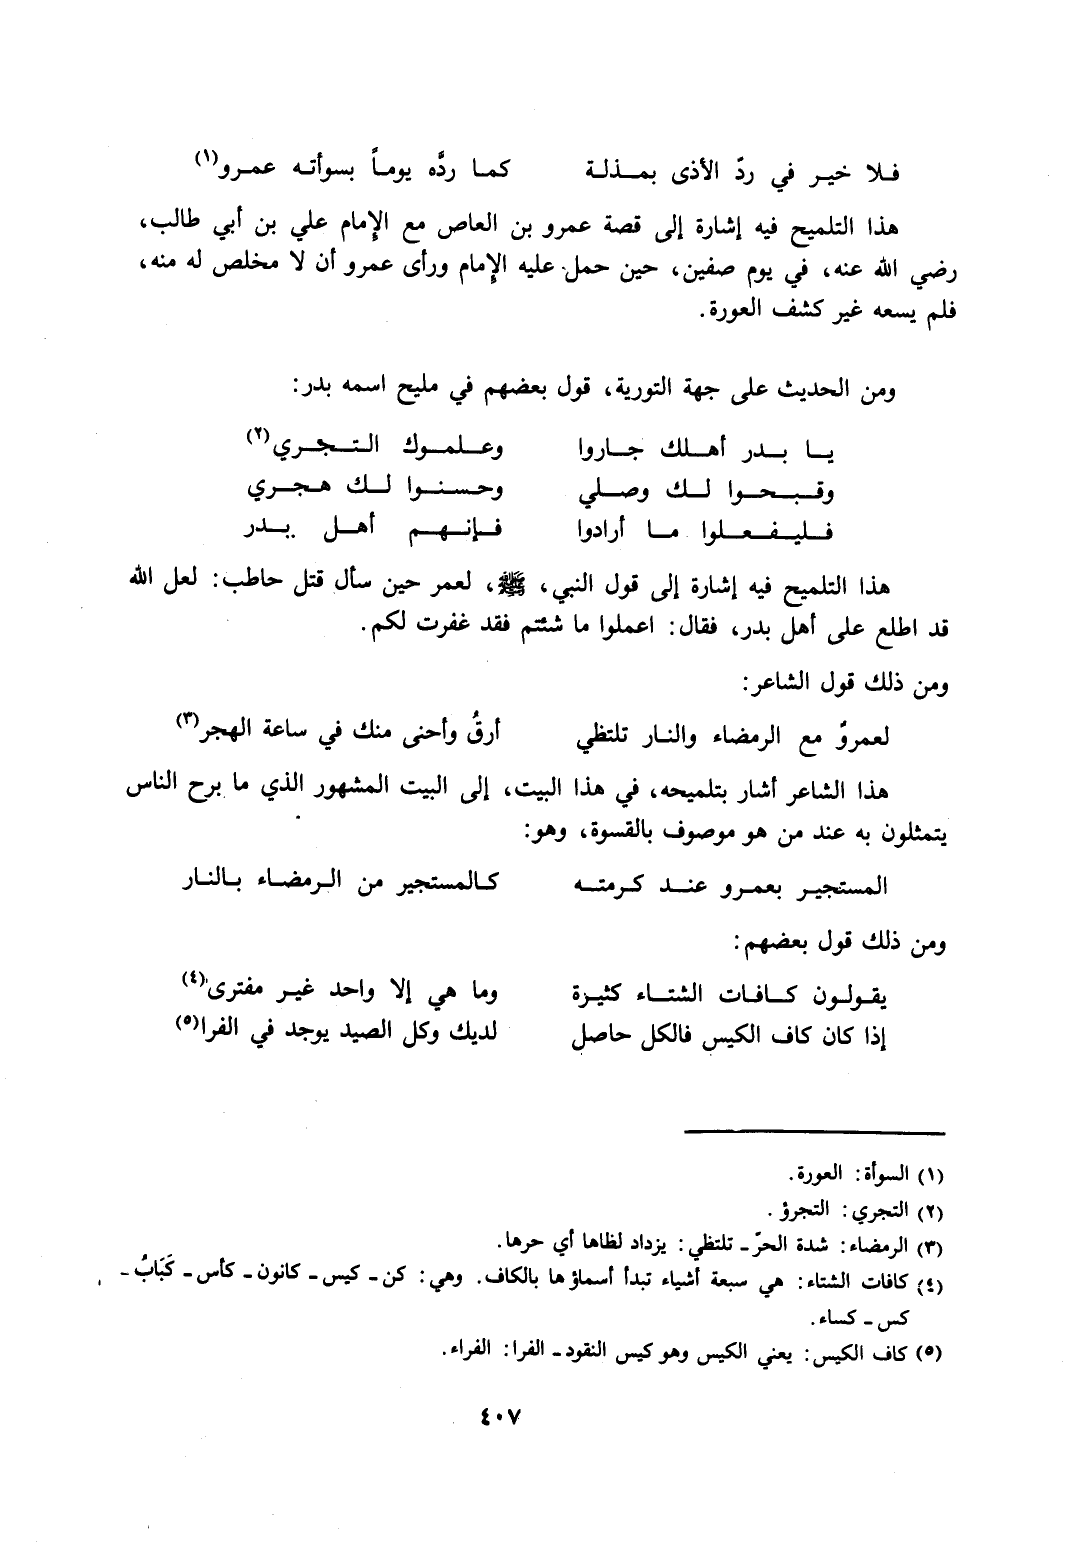 فلا خير في ردّ الأذى بمذلة كما ردَّه يوماً بسوأته عمرو(١)
هذا التلميح فيه إشارة إلى قصة عمرو بن العاص مع الإمام علي بن أبي طالب،
رضي الله عنه، في يوم صفين، حين حمل عليه الإمام ورأى عمرو أن لا مخلص له منه،
فلم يسعه غير كشف العورة.
ومن الحديث على جهة التورية، قول بعضهم في مليح اسمه بدر:
يا بدر أهلك جاروا وعلموك التجري(٢)
وقبحوا لك وصلي وحسنوا لك هجري
فليفعلوا ما أرادوا فإنهم أهل بدر
هذا التلميح فيه إشارة إلى قول النبي، ﷺ، لعمر حين سأل قتل حاطب: لعل الله
قد اطلع على أهل بدر، فقال: اعملوا ما شئتم فقد غفرت لكم.
ومن ذلك قول الشاعر:
لعمروٌ مع الرمضاء والنار تلتظي أرقُ وأحنى منك في ساعة الهجر(٣)
هذا الشاعر أشار بتلميحه، في هذا البيت، إلى البيت المشهور الذي ما برح الناس
يتمثلون به عند من هو موصوف بالقسوة، وهو:
المستجير بعمرو عند كرمته كالمستجير من الرمضاء بالنار
ومن ذلك قول بعضهم:
يقولون كافات الشتاء كثيرة وما هي إلا واحد غير مفترى(٤)
إذا كان كاف الكيس فالكل حاصل لديك وكل الصيد يوجد في الفرا(٥)
(١) السوأة: العورة.
(٢) التجري: التجرؤ.
(٣) الرمضاء: شدة الحرّ ـ تلتظي: يزداد لظاها أي حرها.
(٤) كافات الشتاء: هي سبعة أشياء تبدأ أسماؤها بالكاف. وهي: كن ـ كيس ـ كانون ـ كأس ـ كَبَابُ ـ
كس ـ كساء.
(٥) كاف الكيس: يعني الكيس وهو كيس النقود ـ الفرا: الفراء.
٤٠٧